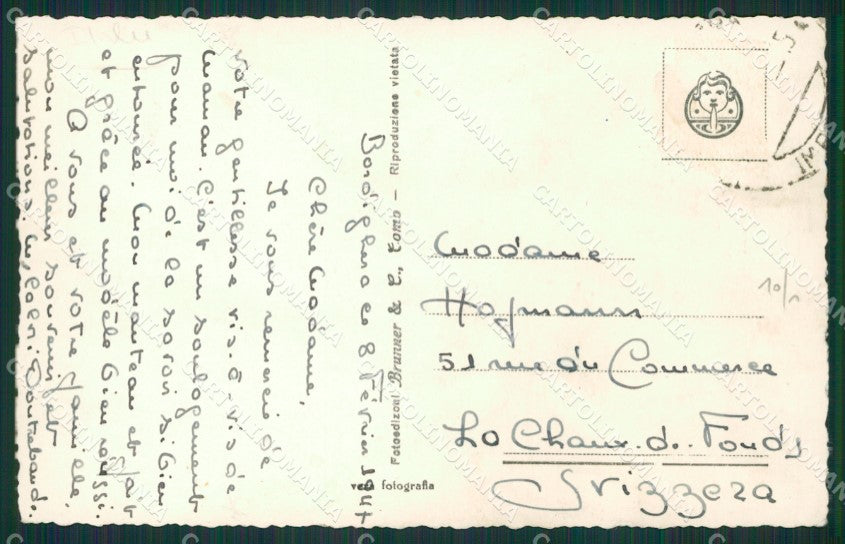 Bordighera le 8 Février 1947
Chère Madame,
Je vous remercie de
votre gentillesse vis-à-vis de
Maman. C'est un soulagement
pour moi de la savoir si bien
entourée. Mon manteau est fait
et grâce au modèle bien aussi.
A vous et votre famille,
mon meilleur souvenir et
salutations.
Fotoedizioni Brunner & C., Como — Riproduzione vietata
vera fotografia
Madame
Hofmann
51 rue du Commerce
La Chaux-de-Fonds
Svizzera
CARTOLINOMANIA